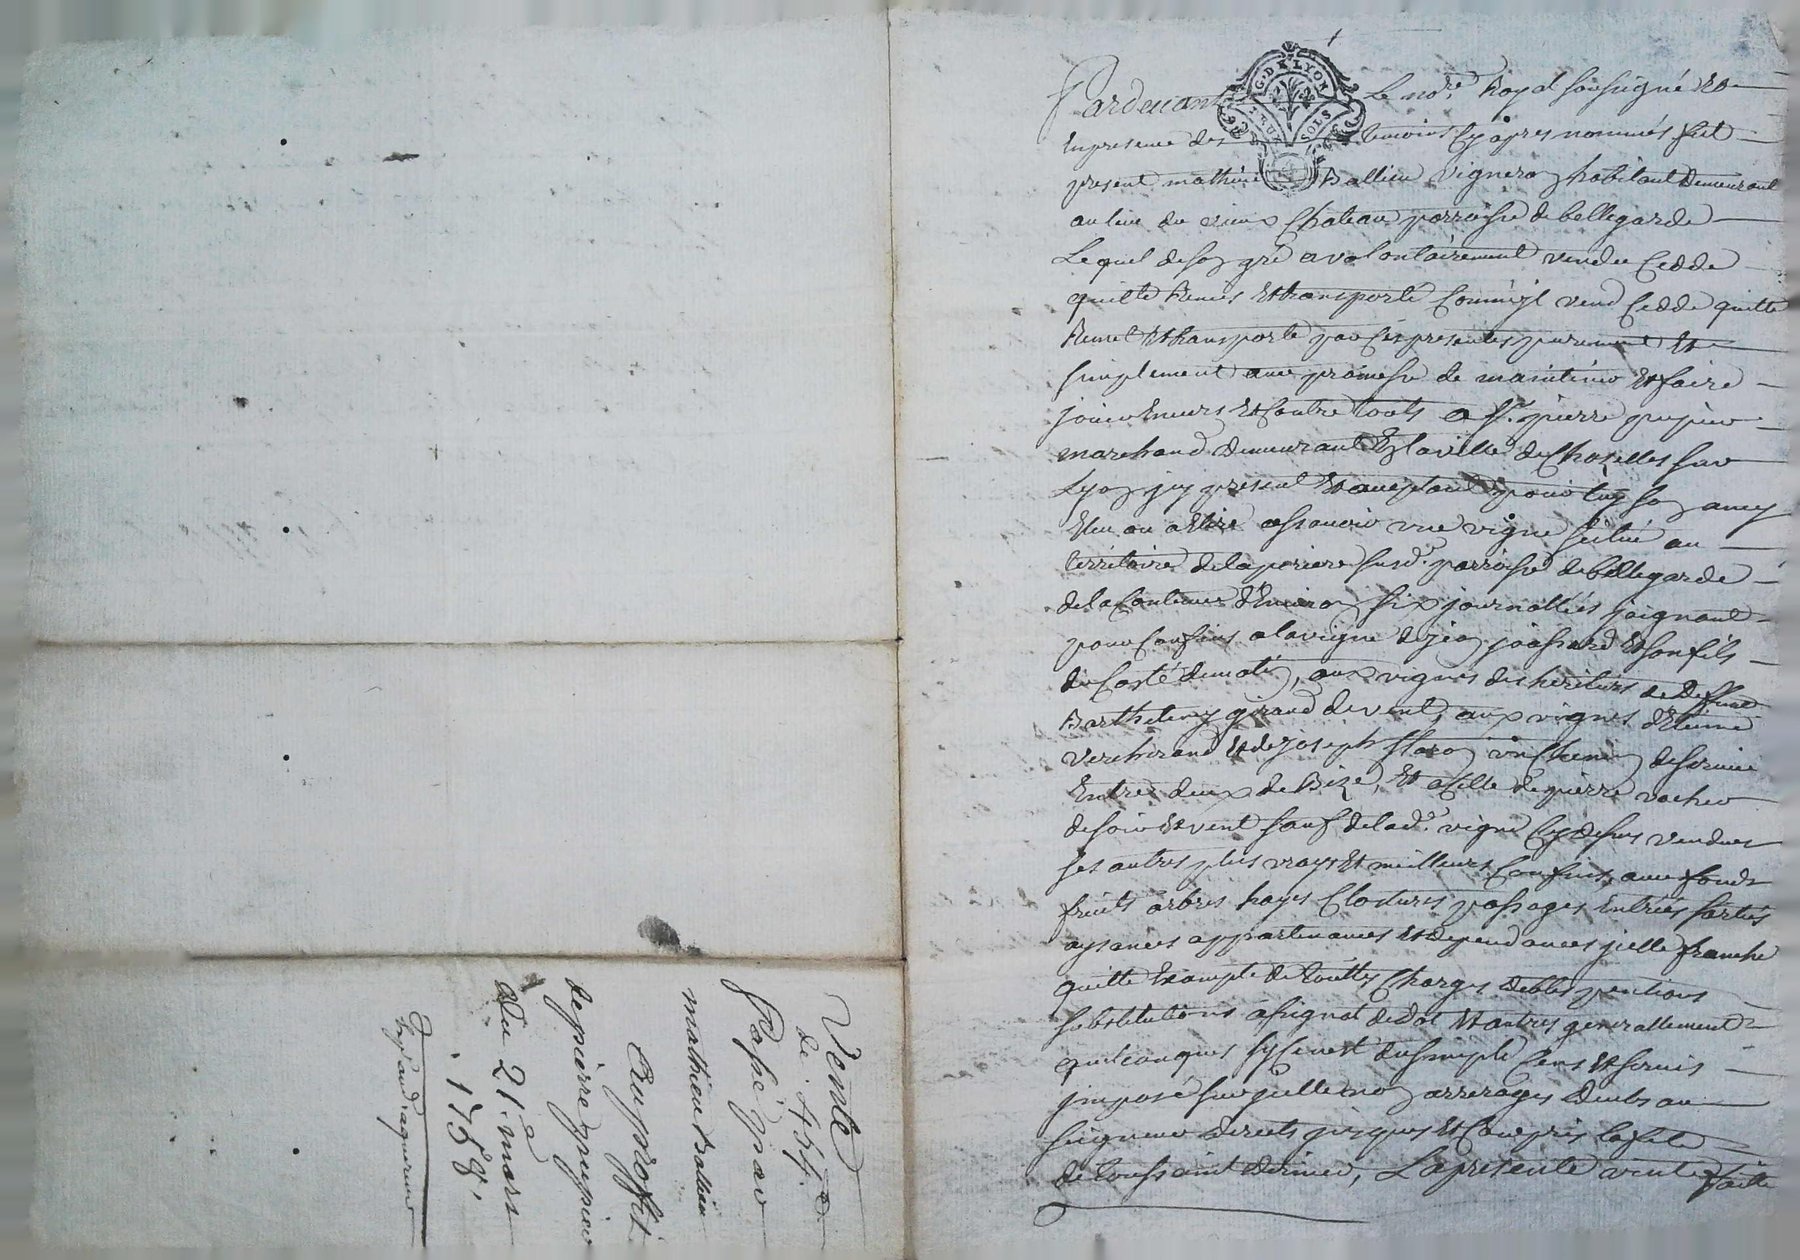 G. DE LYON
DEUX SOLS
Pardevant Le no.re Royal soussigné Et
En presence des temoins cy apres nommés fut
present mathieu Ballieu vigneron habitant Demeurant
au lieu du vieux Chateau parroisse de bellegarde
Lequel de son gré a volontairement vendu Cedde
quitte Remis Et transporté Comme jl vend Cedde quitte
Remet Et transporte par Ces presentes purement Et
simplement avec promesse de maintenir Et faire
jouir Envers Et Contre touts a Sr. pierre pupier
marchand Demeurant En la ville de Chazelles sur
Lyon jcy present Et acceptant pour luy son amy
Eleu ou a Elire assavoir une vigne scitué au
territoire de la periere susd. parroisse de bellegarde
de la Contenue d'Environ six journallées joignant
pour Confins a la vigne de jean joassard Et son fils
du Costé de matin, aux vignes des heritiers de Deffunt
Barthelemy girand de vent, aux vignes d'Etienne
vercherand Et de joseph un Chemin de service
Entre deux de Bize, Et a Celle de pierre vacher
de soir Et vent sauf de la d. vigne Cy dessus vendue
ses autres plus vrays Et meilleurs Confins, avec fonds
fruits arbres hayes Clotures passages Entrées sorties
aysances appartenances Et dependances jcelle franche
quitte Exempte de touttes Charges debtes pentions
substitutions assignat de Dot Et autres generallement
quelconques sy Ce n'est du simple Cens Et servis
jmposé sur jcelle non arrerages Deubs au
seigneur Directs jusques Et Compris la fete
de toussaint Dernier, La presente vente faite
Vente
de 454.
Passé par
mathieu Ballieu
au proffit
de pierre pupier
Du 21 mars
1758.